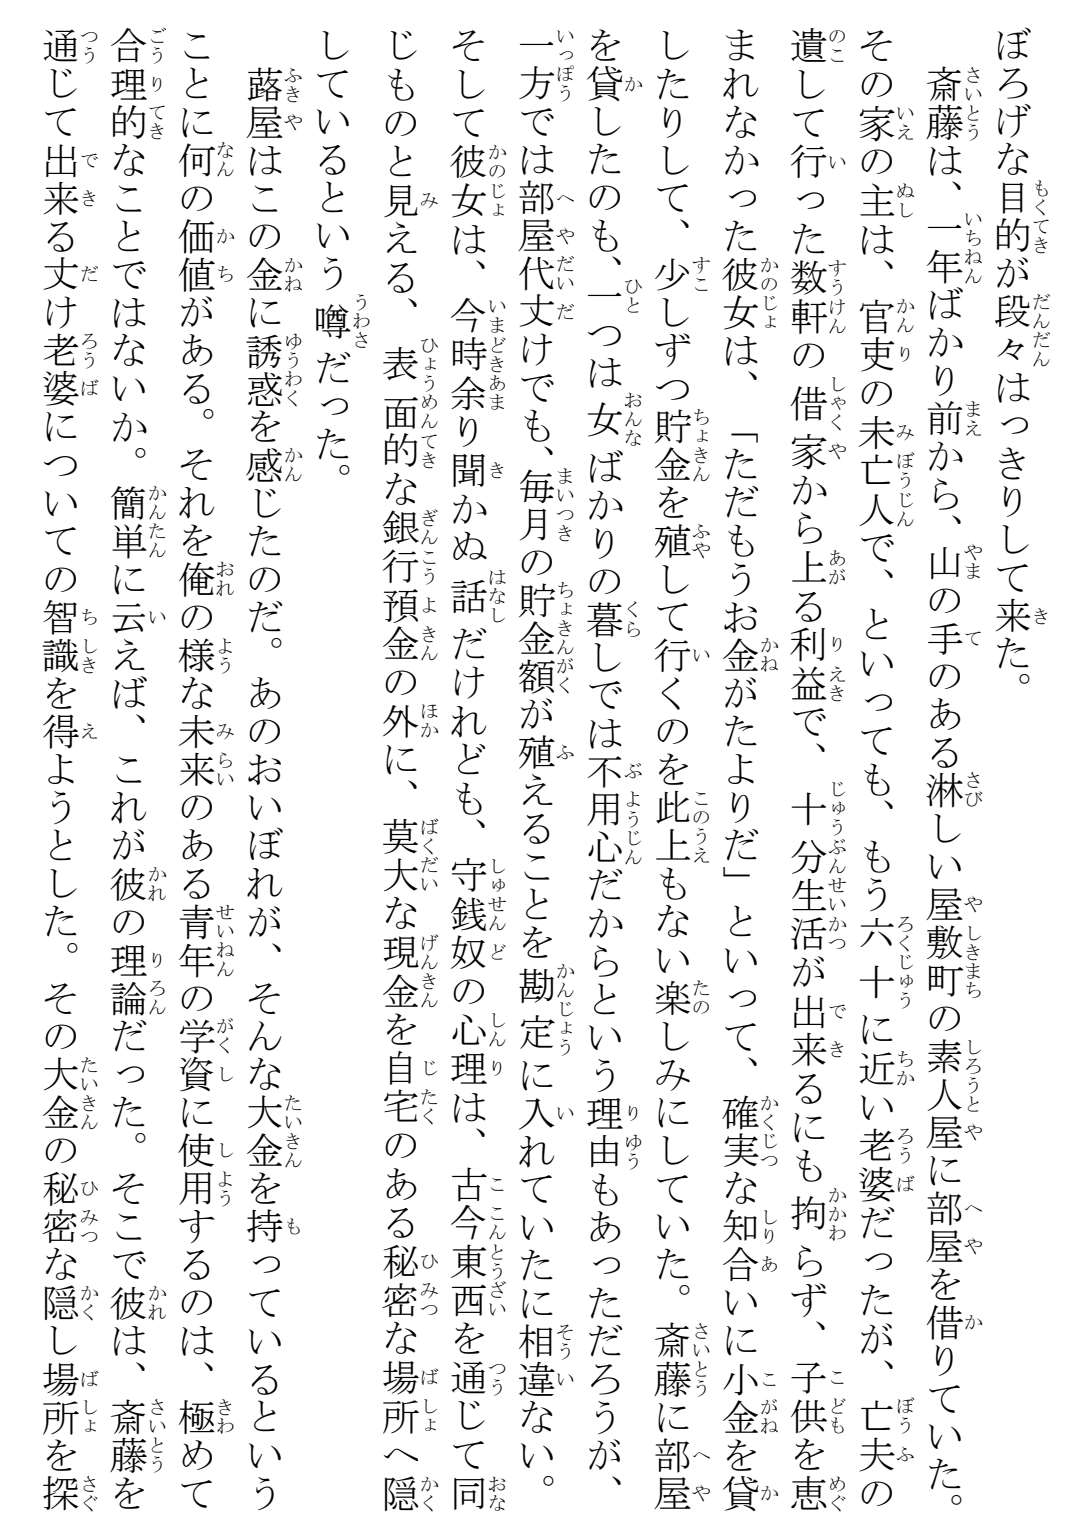 ぼろげな目的が段々はっきりして来た。
斎藤は、一年ばかり前から、山の手のある淋しい屋敷町の素人屋に部屋を借りていた。
その家の主は、官吏の未亡人で、といっても、もう六十に近い老婆だったが、亡夫の
遺して行った数軒の借家から上る利益で、十分生活が出来るにも拘らず、子供を恵
まれなかった彼女は、「ただもうお金がたよりだ」といって、確実な知合いに小金を貸
したりして、少しずつ貯金を殖して行くのを此上もない楽しみにしていた。斎藤に部屋
を貸したのも、一つは女ばかりの暮しでは不用心だからという理由もあっただろうが、
一方では部屋代丈けでも、毎月の貯金額が殖えることを勘定に入れていたに相違ない。
そして彼女は、今時余り聞かぬ話だけれども、守銭奴の心理は、古今東西を通じて同
じものと見える、表面的な銀行預金の外に、莫大な現金を自宅のある秘密な場所へ隠
しているという噂だった。
蕗屋はこの金に誘惑を感じたのだ。あのおいぼれが、そんな大金を持っているという
ことに何の価値がある。それを俺の様な未来のある青年の学資に使用するのは、極めて
合理的なことではないか。簡単に云えば、これが彼の理論だった。そこで彼は、斎藤を
通じて出来る丈け老婆についての智識を得ようとした。その大金の秘密な隠し場所を探